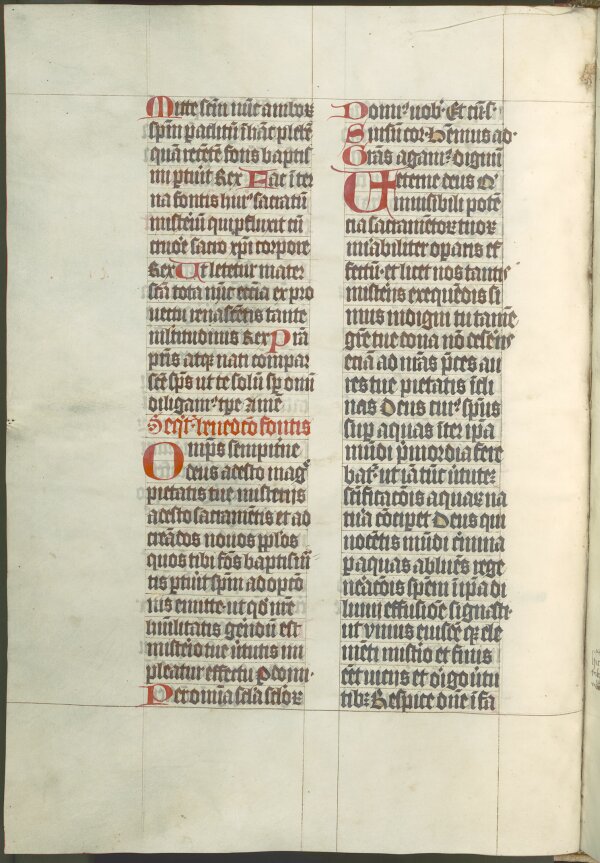 Mitte scm nūc ambor
spm paclitū ī hāc plebē
quā recētē fons baptis
mi ptuit Rex Fac īter
na fontis huiꝰ sacratū
misteriū qui pfluxit cū
cruoē sacro xpi corpore
Rex Ut letetur mater
scā tota nūc eccīa ex pro
uectu renascētis tante
multitudinis Rex Prā
ptris atqꝫ nati compar
scē sp̄s ut te solū sp omī
diligamꝰ tpe Amē
Seqt᷑ benedcō fontis
Omps sempitne
deus adesto mag
pietatis tue misteriis
adesto sacramētis et ad
creādos nouos pplos
quos tibi fōs baptismi
tis ptuit spm adopcō
nis emitte ut qd nrē
humilitatis gerēdū est
misterio tue ūtutis im
pleatur effectu P dom
Per omīa scla sclor
Domīꝰ uob Et cū s
Sursū cor Hēmus ad
Grās agamꝰ dignū
eterne deus Q
inuisibili potē
cia sacramētor tuor
mirabiliter oparis ef
fectū et licet nos tantis
misteriis exequēdis si
mus indigni tu tamē
grē tue dona nō deserēs
eciā ad nrās pces au
res tue pietatis īcli
nas Deus cuiꝰ spūs
sup aquas īter ipa
mūdi pmordia fere
bat ut iā tūc ūtutē
scificacōis aquaꝝ na
tura cōcipet Deus qui
nocētis mūdi cimina
p aquas abluēs rege
neracōis spēm ī ipa di
luuij effusiōe signasti
ut vnius eiusdē qꝫ ele
mēti mistio et finis
eēt uiciis et origo ūtu
tibꝫ Respice dūe ī fa